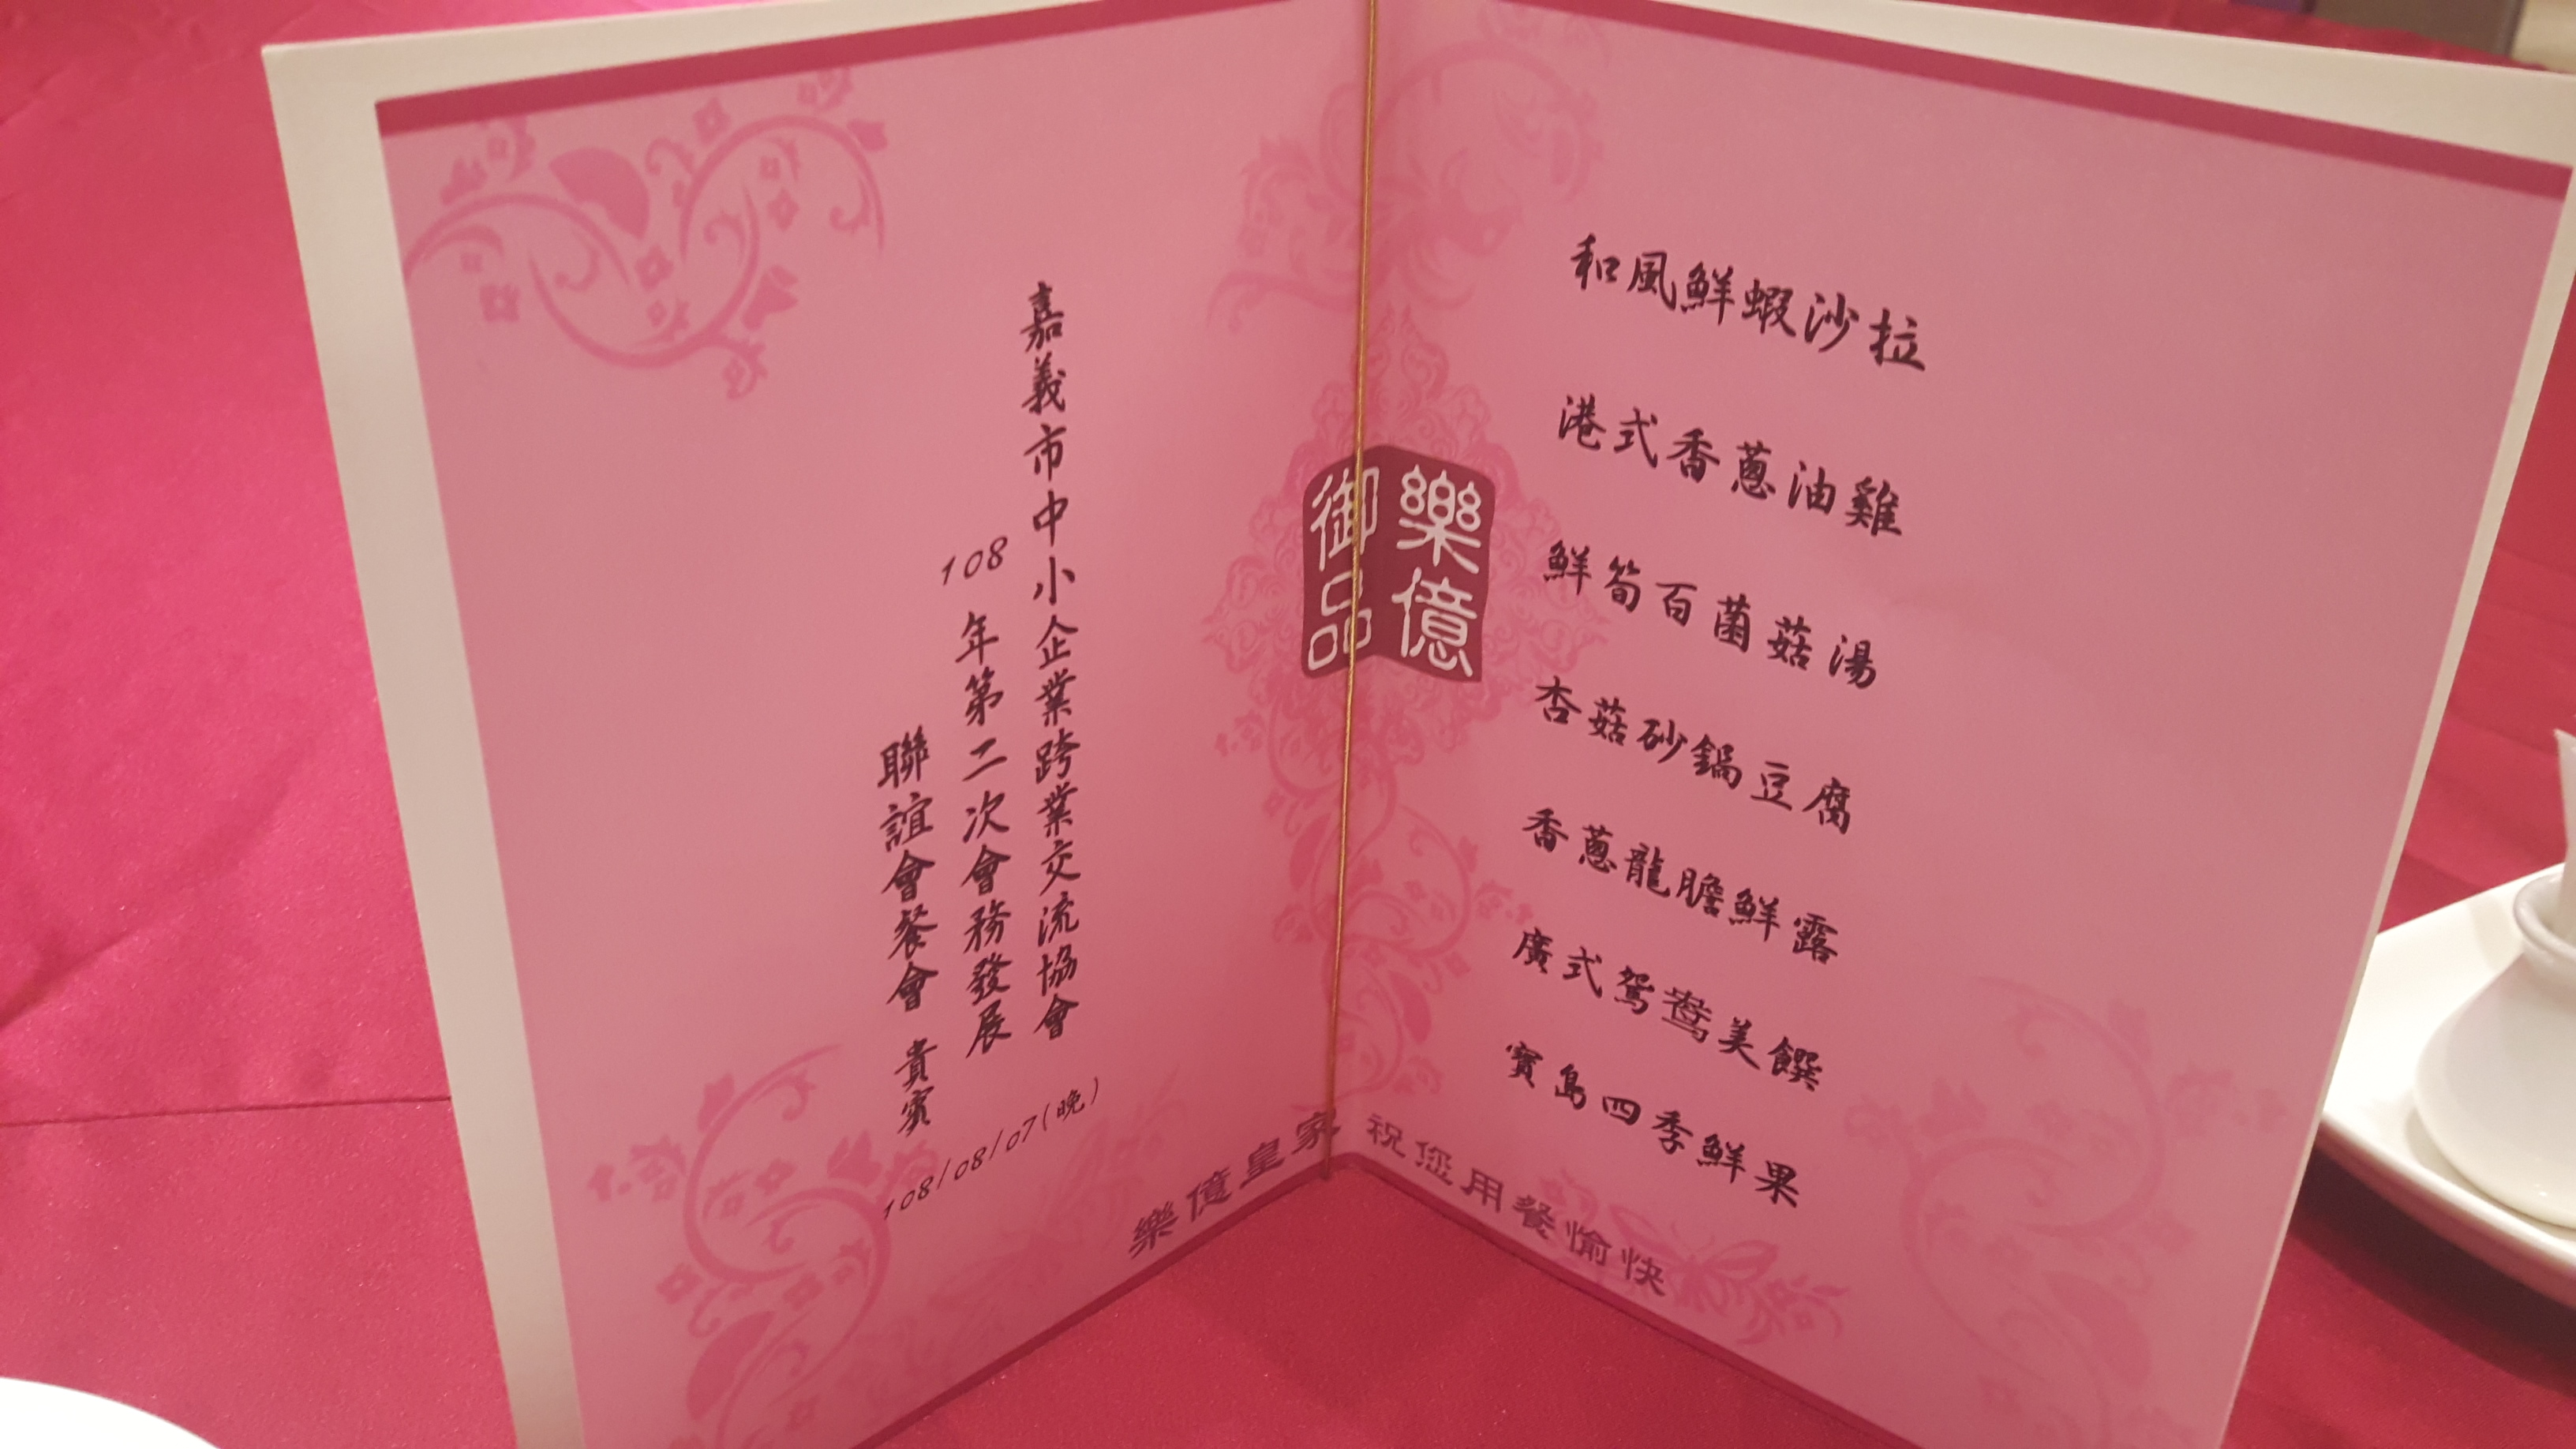 嘉義市中小企業跨業交流協會
108年第二次會務發展
聯誼會餐會 貴賓
108/08/07(晚)
樂億
御品
和風鮮蝦沙拉
港式香蔥油雞
鮮筍百菌菇湯
杏菇砂鍋豆腐
香蔥龍膽鮮露
廣式鴛鴦美饌
寶島四季鮮果
樂億皇家 祝您用餐愉快